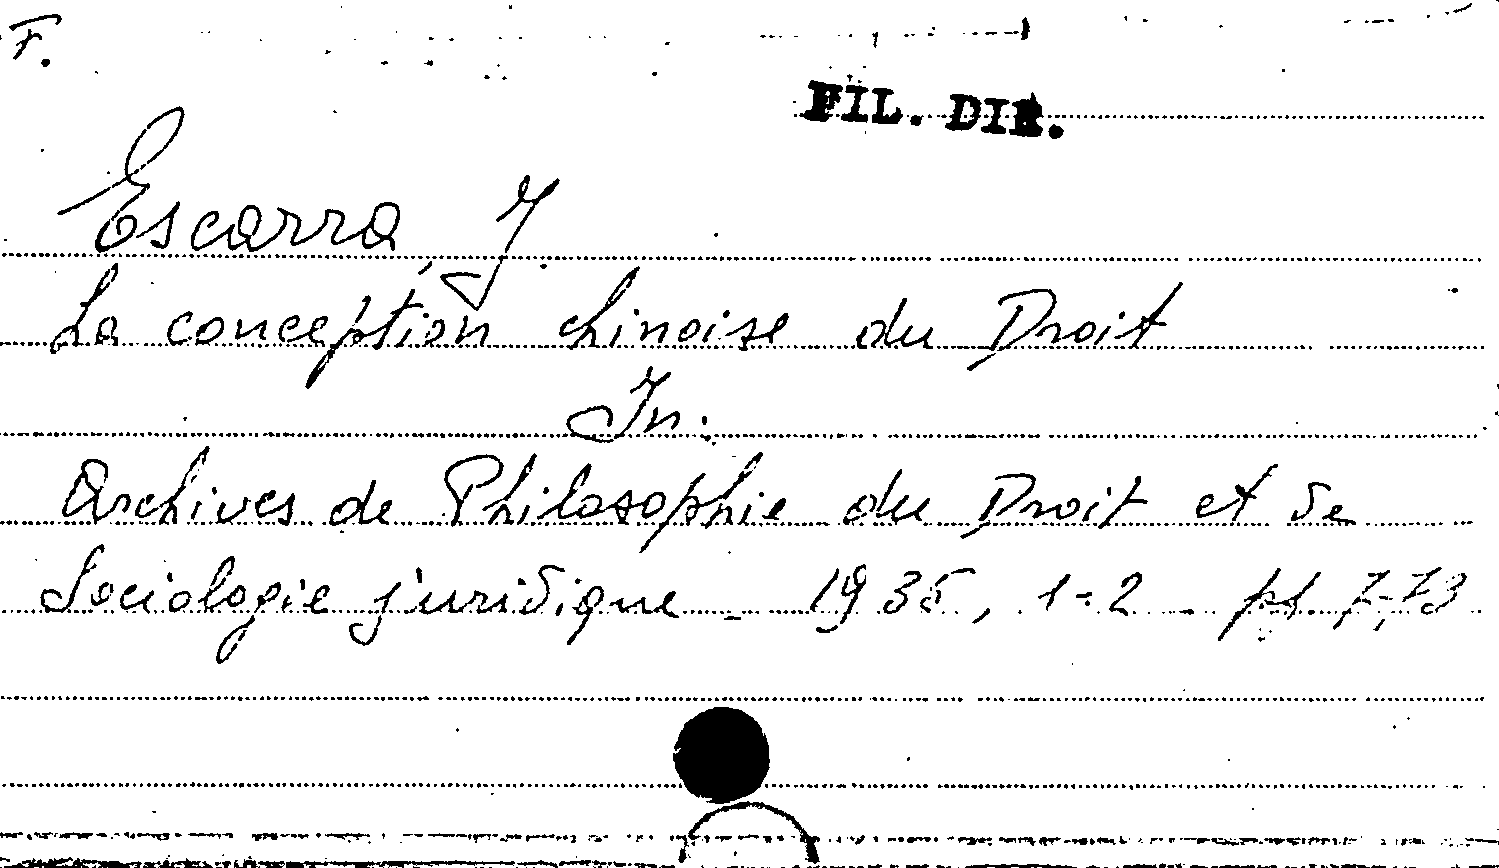 F.
FIL. DIR.
Escarra, J.
La conception chinoise du Droit
In:
Archives de Philosophie du Droit et de
Sociologie juridique - 1935, 1-2 - pp. 7-73